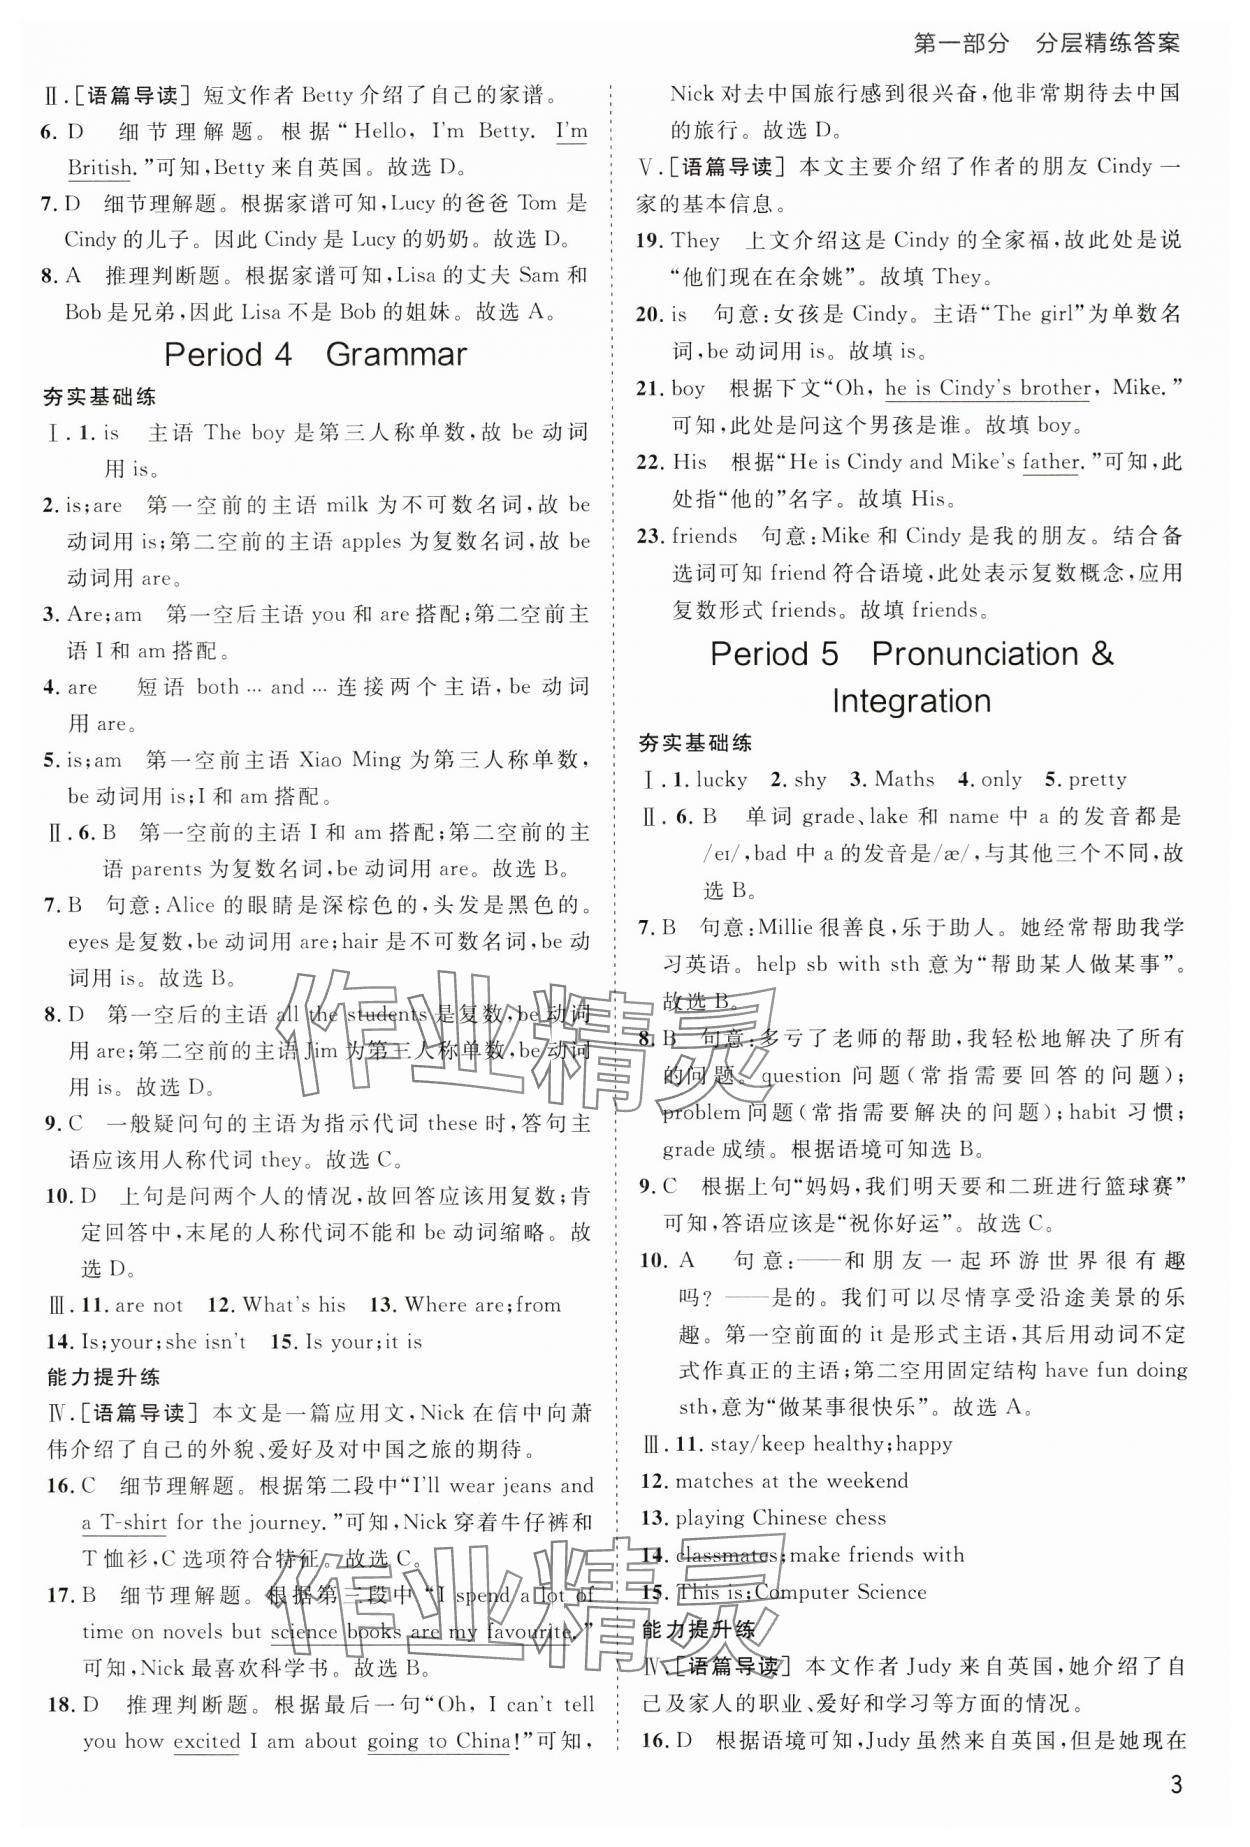 第一部分 分层精练答案
Ⅱ.[语篇导读] 短文作者 Betty 介绍了自己的家谱。
6. D 细节理解题。根据“Hello, I'm Betty. I'm
British.”可知,Betty 来自英国。故选 D。
7. D 细节理解题。根据家谱可知,Lucy 的爸爸 Tom 是
Cindy 的儿子。因此 Cindy 是 Lucy 的奶奶。故选 D。
8. A 推理判断题。根据家谱可知,Lisa 的丈夫 Sam 和
Bob 是兄弟,因此 Lisa 不是 Bob 的姐妹。故选 A。
Period 4 Grammar
夯实基础练
Ⅰ. 1. is 主语 The boy 是第三人称单数,故 be 动词
用 is。
2. is;are 第一空前的主语 milk 为不可数名词,故 be
动词用 is;第二空前的主语 apples 为复数名词,故 be
动词用 are。
3. Are;am 第一空后主语 you 和 are 搭配;第二空前主
语 I 和 am 搭配。
4. are 短语 both … and … 连接两个主语,be 动词
用 are。
5. is;am 第一空前主语 Xiao Ming 为第三人称单数,
be 动词用 is;I 和 am 搭配。
Ⅱ. 6. B 第一空前的主语 I 和 am 搭配;第二空前的主
语 parents 为复数名词,be 动词用 are。故选 B。
7. B 句意:Alice 的眼睛是深棕色的,头发是黑色的。
eyes 是复数,be 动词用 are;hair 是不可数名词,be 动
词用 is。故选 B。
8. D 第一空后的主语 all the students 是复数,be 动词
用 are;第二空前的主语 Jim 为第三人称单数,be 动词
用 is。故选 D。
9. C 一般疑问句的主语为指示代词 these 时,答句主
语应该用人称代词 they。故选 C。
10. D 上句是问两个人的情况,故回答应该用复数;肯
定回答中,末尾的人称代词不能和 be 动词缩略。故
选 D。
Ⅲ. 11. are not 12. What's his 13. Where are;from
14. Is;your;she isn't 15. Is your;it is
能力提升练
Ⅳ.[语篇导读] 本文是一篇应用文,Nick 在信中向萧
伟介绍了自己的外貌、爱好及对中国之旅的期待。
16. C 细节理解题。根据第二段中“I'll wear jeans and
a T-shirt for the journey.”可知,Nick 穿着牛仔裤和
T 恤衫,C 选项符合特征。故选 C。
17. B 细节理解题。根据第三段中“I spend a lot of
time on novels but science books are my favourite.”
可知,Nick 最喜欢科学书。故选 B。
18. D 推理判断题。根据最后一句“Oh, I can't tell
you how excited I am about going to China!”可知,
Nick 对去中国旅行感到很兴奋,他非常期待去中国
的旅行。故选 D。
Ⅴ.[语篇导读] 本文主要介绍了作者的朋友 Cindy 一
家的基本信息。
19. They 上文介绍这是 Cindy 的全家福,故此处是说
“他们现在在余姚”。故填 They。
20. is 句意:女孩是 Cindy。主语“The girl”为单数名
词,be 动词用 is。故填 is。
21. boy 根据下文“Oh, he is Cindy's brother, Mike.”
可知,此处是问这个男孩是谁。故填 boy。
22. His 根据“He is Cindy and Mike's father.”可知,此
处指“他的”名字。故填 His。
23. friends 句意:Mike 和 Cindy 是我的朋友。结合备
选词可知 friend 符合语境,此处表示复数概念,应用
复数形式 friends。故填 friends。
Period 5 Pronunciation &
Integration
夯实基础练
Ⅰ. 1. lucky 2. shy 3. Maths 4. only 5. pretty
Ⅱ. 6. B 单词 grade、lake 和 name 中 a 的发音都是
/eɪ/,bad 中 a 的发音是/æ/,与其他三个不同,故
选 B。
7. B 句意:Millie 很善良,乐于助人。她经常帮助我学
习英语。help sb with sth 意为“帮助某人做某事”。
故选 B。
8. B 句意:多亏了老师的帮助,我轻松地解决了所有
的问题。question 问题(常指需要回答的问题);
problem 问题(常指需要解决的问题);habit 习惯;
grade 成绩。根据语境可知选 B。
9. C 根据上句“妈妈,我们明天要和二班进行篮球赛”
可知,答语应该是“祝你好运”。故选 C。
10. A 句意:——和朋友一起环游世界很有趣
吗?——是的。我们可以尽情享受沿途美景的乐
趣。第一空前面的 it 是形式主语,其后用动词不定
式作真正的主语;第二空用固定结构 have fun doing
sth,意为“做某事很快乐”。故选 A。
Ⅲ. 11. stay/keep healthy;happy
12. matches at the weekend
13. playing Chinese chess
14. classmates;make friends with
15. This is;Computer Science
能力提升练
Ⅳ.[语篇导读] 本文作者 Judy 来自英国,她介绍了自
己及家人的职业、爱好和学习等方面的情况。
16. D 根据语境可知,Judy 虽然来自英国,但是她现在
3
作业精灵
作业精灵